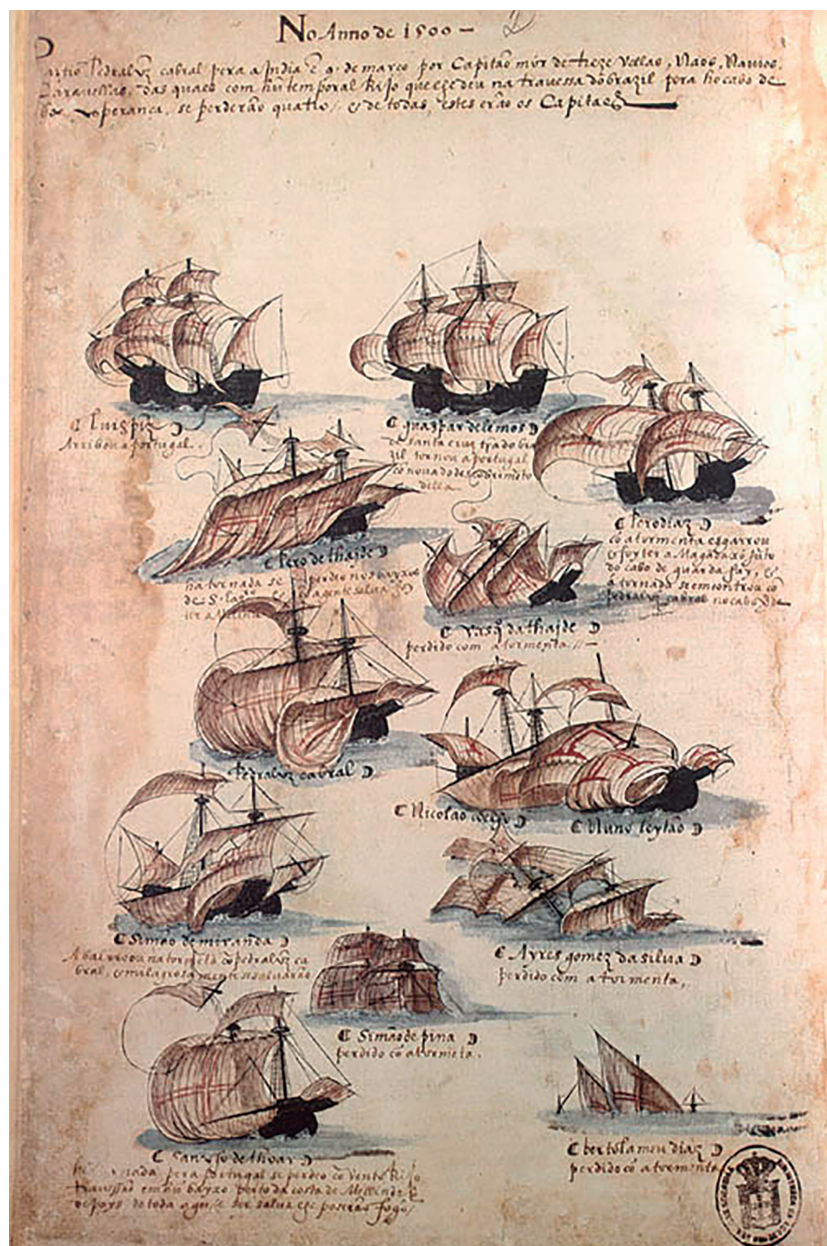 No Anno de 1500 —
Partio Pedralvz cabral pera a India è 9. de março por Capitão mór de treze Vellas, Naos, Navios,
Caravellas, das quaes com hũ temporal Rijo que lhe deu na travessa do brazil pera ho cabo de
boa sperança, se perderão quatro, e de todas, estes erão os Capitães
Luis piz
Arribou a portugal.
guaspar de lemos
da santa cruz tra do bra
zil tornou a portugal
cõ nova do descobrimeto
della
Pero diaz
cõ a tormenta esgarrou
e foy ter a Magadaxó juto
do cabo de guardafuy, e
a tornada se encontrou cõ
pedralvz cabral no cabo
Pero de thaide
ha tornada se perdeo nos baxos
de S. lazaro a gente salva
vasq̃ da thaide
perdido com a tormenta.
Pedralvz cabral
Nicolao
Nuno leytão
Simão de miranda
Abalrrou na tormeta cõ pedralvz ca
bral, e milagrosamente se salvarão
Ayres gomez da silva
perdido com a tormenta,
Simão de pina
perdido cõ a tormeta.
San de thoar
pera portugal se perdeo cõ vento Rijo
travessão em hũ baxo perto da costa de Mellinde
toda a gente salva e poserão fogo
bertolameu diaz
perdido cõ a tormenta